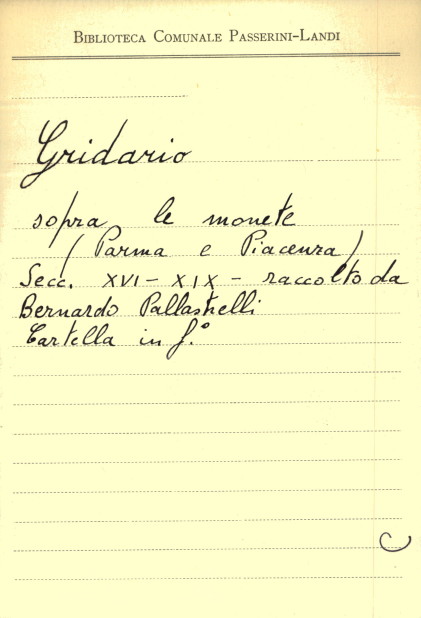 BIBLIOTECA COMUNALE PASSERINI-LANDI
Gridario
sopra le monete
(Parma e Piacenza)
Secc. XVI - XIX - raccolto da
Bernardo Pallastrelli
Cartella in f.º